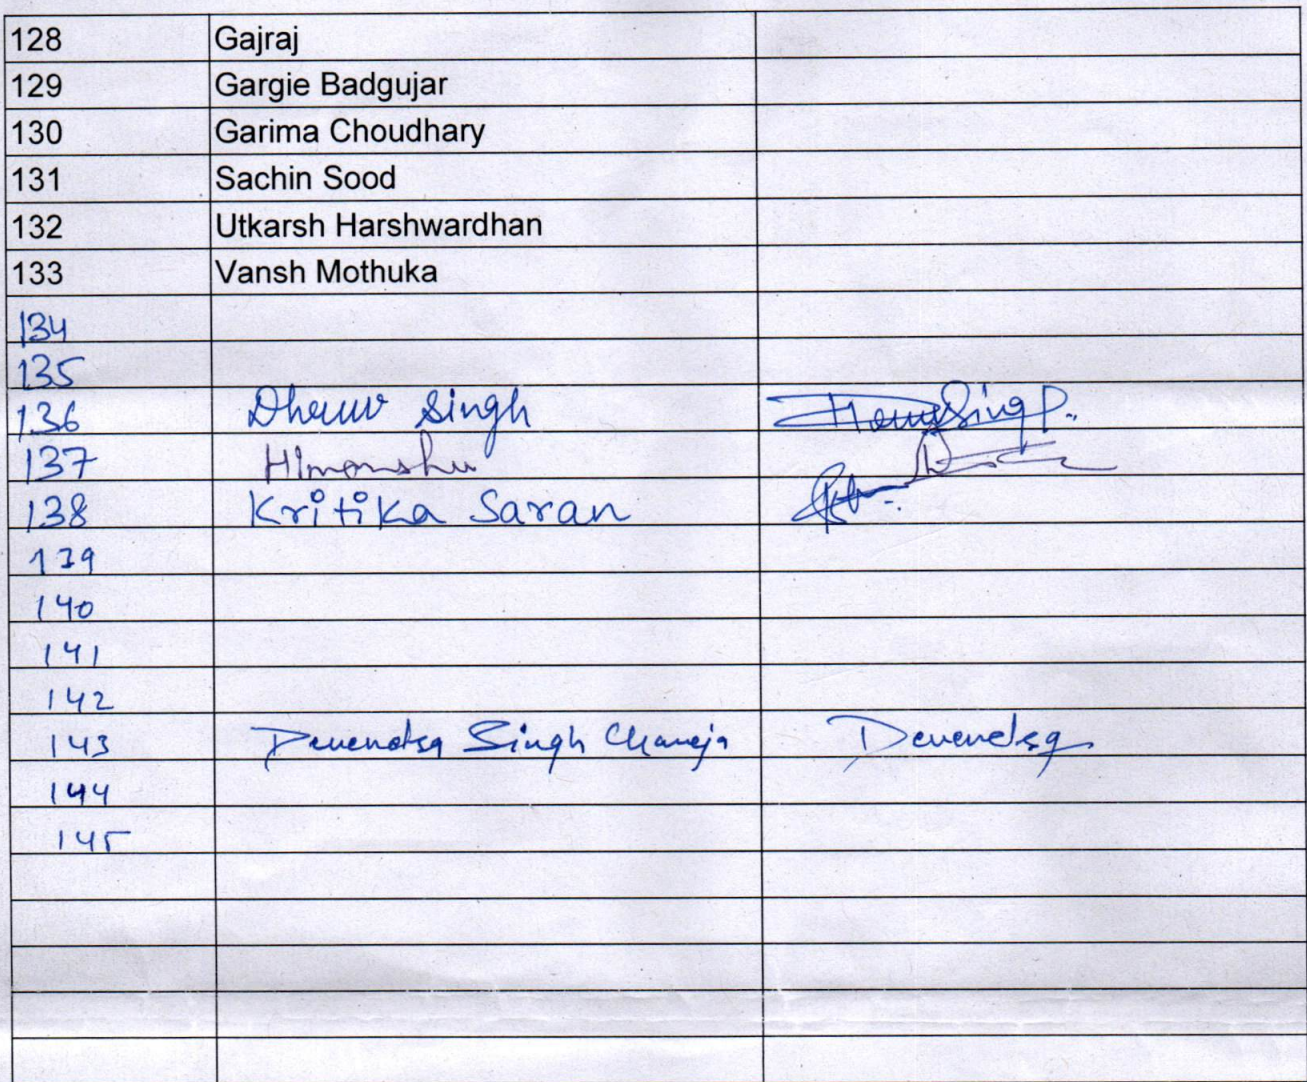 128 Gajraj
129 Gargie Badgujar
130 Garima Choudhary
131 Sachin Sood
132 Utkarsh Harshwardhan
133 Vansh Mothuka
134
135
136 Dhruv Singh
137 Himanshu
138 Kritika Saran
139
140
141
142
143 Devendra Singh Devendra
144
145